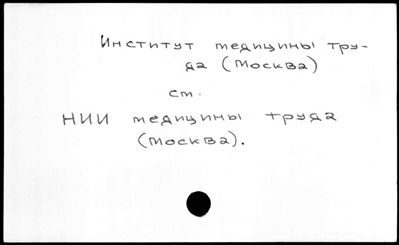 Институт медицины тру-
да (Москва)
см.
НИИ медицины труда
(Москва).